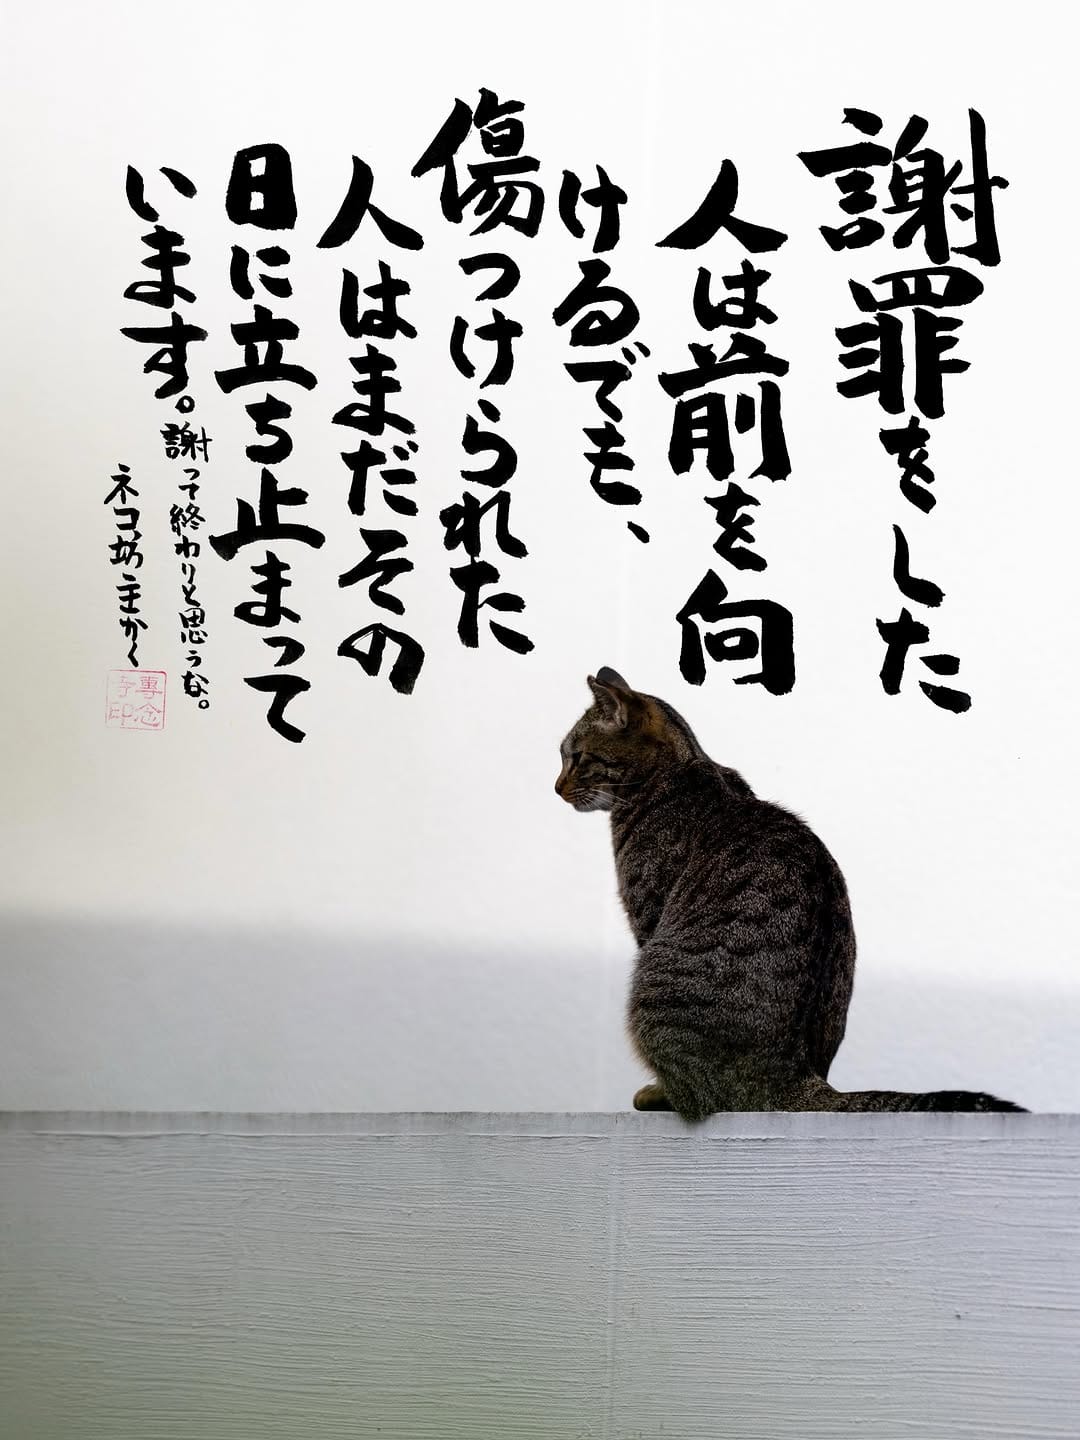 謝罪をした
人は前を向
けるでも、
傷つけられた
人はまだその
日に立ち止まって
います。
謝って終わりと思うな。
ネコ坊主かく
專念
寺印